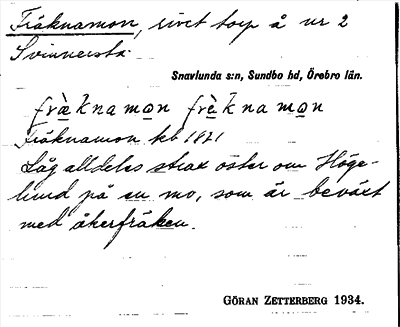 Fräknamon, rivet torp å nr 2
Svinnersta.
Snavlunda s:n, Sundbo hd, Örebro län.
fràknamo̲n frèknamo̲n
Fräknamon kb 1821
Låg alldeles strax öster om Höge-
lund på en mo, som är beväxt
med åkerfräken.
GÖRAN ZETTERBERG 1934.